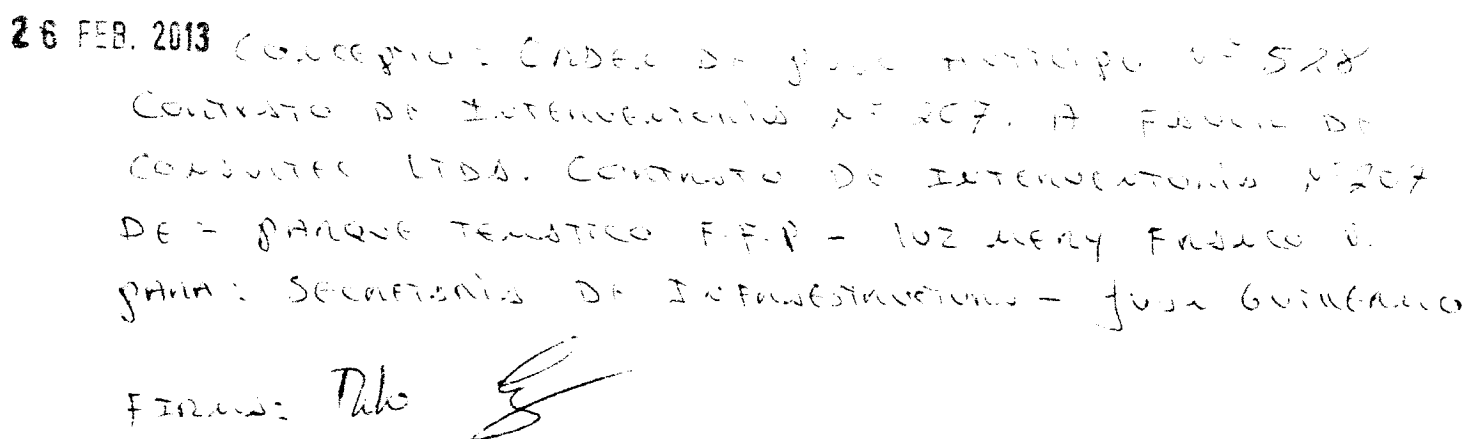 26 FEB. 2013 Concepto: Orden de pago anticipo Nº 528
Contrato de Interventoria Nº 207. A Favor de
Consultec LTDA. Contrato de Interventoria Nº 207
DE - PARQUE TEMATICO F.F.P - LUZ MERY FRANCO V.
PARA: SECRETARIA DE INFRAESTRUCTURA - Juan GUILLERMO
FIRMA: